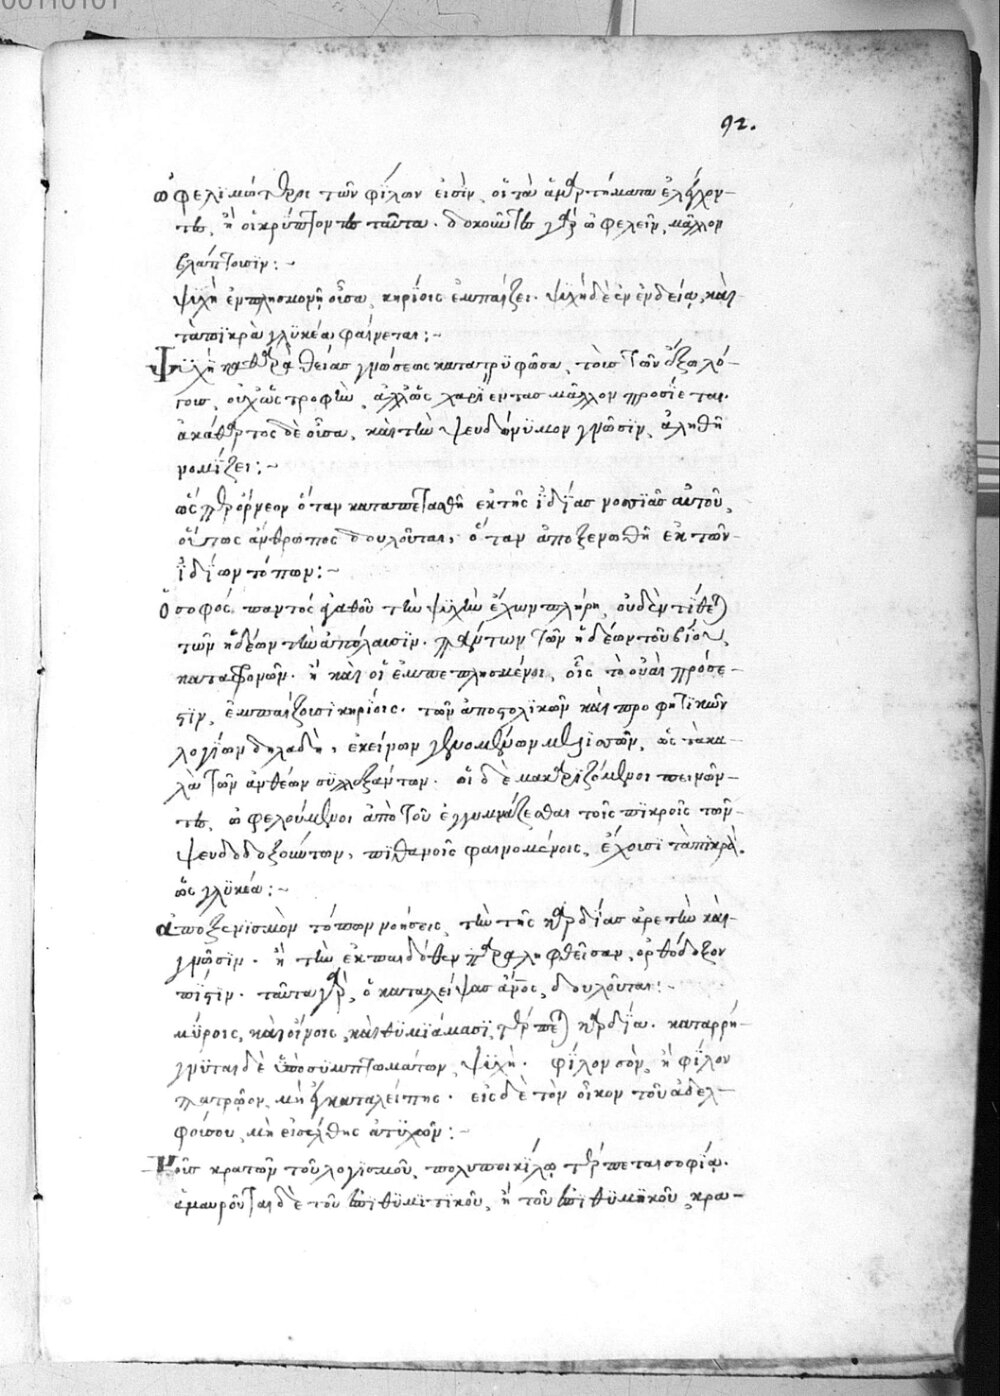 00110101
92.
ὠφελιμώτεροι τῶν φίλων εἰσὶν, οἱ τὰ ἁμαρτήματα ἐλέγχον-
τες, ἢ οἱ κρύπτοντες ταῦτα. δοκοῦντες γὰρ ὠφελεῖν, μᾶλλον
βλάπτουσιν:~
ψϋχὴ ἐν πλησμονῇ οὖσα, κηρίοις ἐμπαίζει. ψϋχὴ δὲ ἐν ἐνδείᾳ, καὶ
τὰ πϊκρὰ γλϋκέα φαίνεται:~
Ψϋχὴ καθαρὰ θείας γνώσεως κατατρϋφῶσα, τοὺς τῶν ἔξω λό-
γους, οὐχ ὡς τροφὴν, ἀλλ' ὡς χαρϊεντας μᾶλλον προσϊεται.
ἀκάθαρτος δὲ οὖσα, καὶ τὴν ψευδώνϋμον γνῶσϊν, ἀληθῆ
νομϊζει:~
ὥσπερ ὄρνεον ὅταν καταπετασθῇ ἐκ τῆς ἰδϊας νοσσϊᾶς αὐτοῦ,
οὕτως ἄνθρωπος δουλοῦται, ὅταν ἀποξενωθῇ ἐκ τῶν
ἰδϊων τόπων:~
Ὁ σοφός, παντὸς ἀγαθοῦ τὴν ψϋχὴν ἔχων πλήρη, οὐδὲν τίθεται
τῶν ἡδέων τὴν ἀπόλαυσϊν. πάντων τῶν ἡδέων τοῦ βίου,
καταφρονῶν. ἢ καὶ οἱ ἐμπεπλησμένοι, οἷς τὸ οὐαὶ πρόσε-
στϊν, ἐμπαίζουσϊ κηρίοις. τῶν ἀποστολικῶν καὶ προφητϊκῶν
λογίων δηλαδὴ, ἐκείνων γενομένων μελισσῶν, ὡς τὰ κα-
λὰ τῶν ἀνθέων συλλεξάντων. οἱ δὲ μακαρϊζόμενοι πεινῶν-
τες, ὠφελούμενοι ἀπὸ τοῦ ἐγγυμνάζεσθαι τοῖς πϊκροῖς τῶν
ψευδοδοξούντων, πϊθανοῖς φαινομένοις, ἔχουσϊ τὰ πϊκρὰ,
ὡς γλϋκέα:~
ἀποξενϊσμὸν τόπων νοήσεις, τὴν τῆς καρδίας ἀρετὴν καὶ
γνῶσϊν. ἢ τὴν ἐκ παιδόθεν παραληφθεῖσαν, ὀρθόδοξον
πίστϊν. ταῦτα γὰρ, ὁ καταλείψας ἄνος, δουλοῦται:
μύροις, καὶ οἴνοις, καὶ θϋμϊάμασϊ, τέρπεται καρδϊα. καταρρή-
γνϋται δὲ ὑπὸ συμπτωμάτων, ψϋχὴ. φϊλον σὸν, ἢ φϊλον
πατρῷον, μὴ ἐγκαταλείπης. εἰς δὲ τὸν οἶκον τοῦ ἀδελ-
φοῦ σου, μὴ εἰσέλθης ἀτϋχῶν:~
Νοῦς κρατῶν τοῦ λογϊσμοῦ, πολυποικίλῳ τέρπεται σοφίᾳ.
ἀμαυροῦται δὲ τοῦ ἐπϊθϋμϊτϊκοῦ, ἢ τοῦ ἐπϊθϋμηκοῦ, κρα-